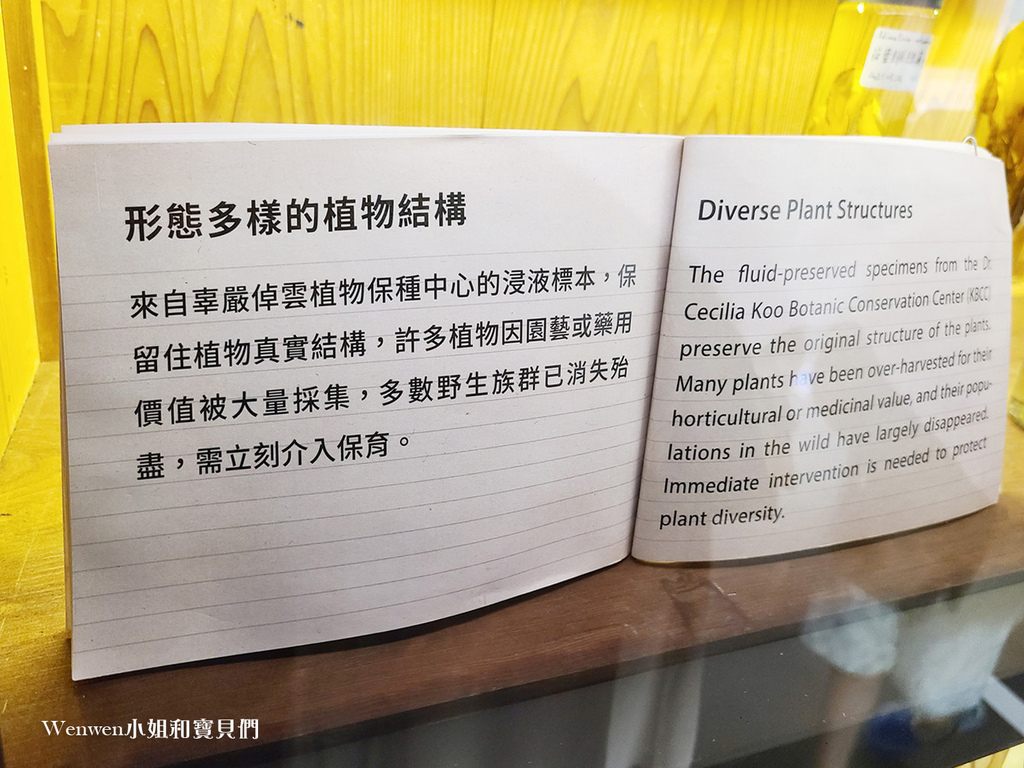 形態多樣的植物結構
來自辜嚴倬雲植物保種中心的浸液標本，保
留住植物真實結構，許多植物因園藝或藥用
價值被大量採集，多數野生族群已消失殆
盡，需立刻介入保育。
Diverse Plant Structures
The fluid-preserved specimens from the Dr.
Cecilia Koo Botanic Conservation Center (KBCC)
preserve the original structure of the plants.
Many plants have been over-harvested for their
horticultural or medicinal value, and their popu-
lations in the wild have largely disappeared.
Immediate intervention is needed to protect
plant diversity.
Wenwen小姐和寶貝們